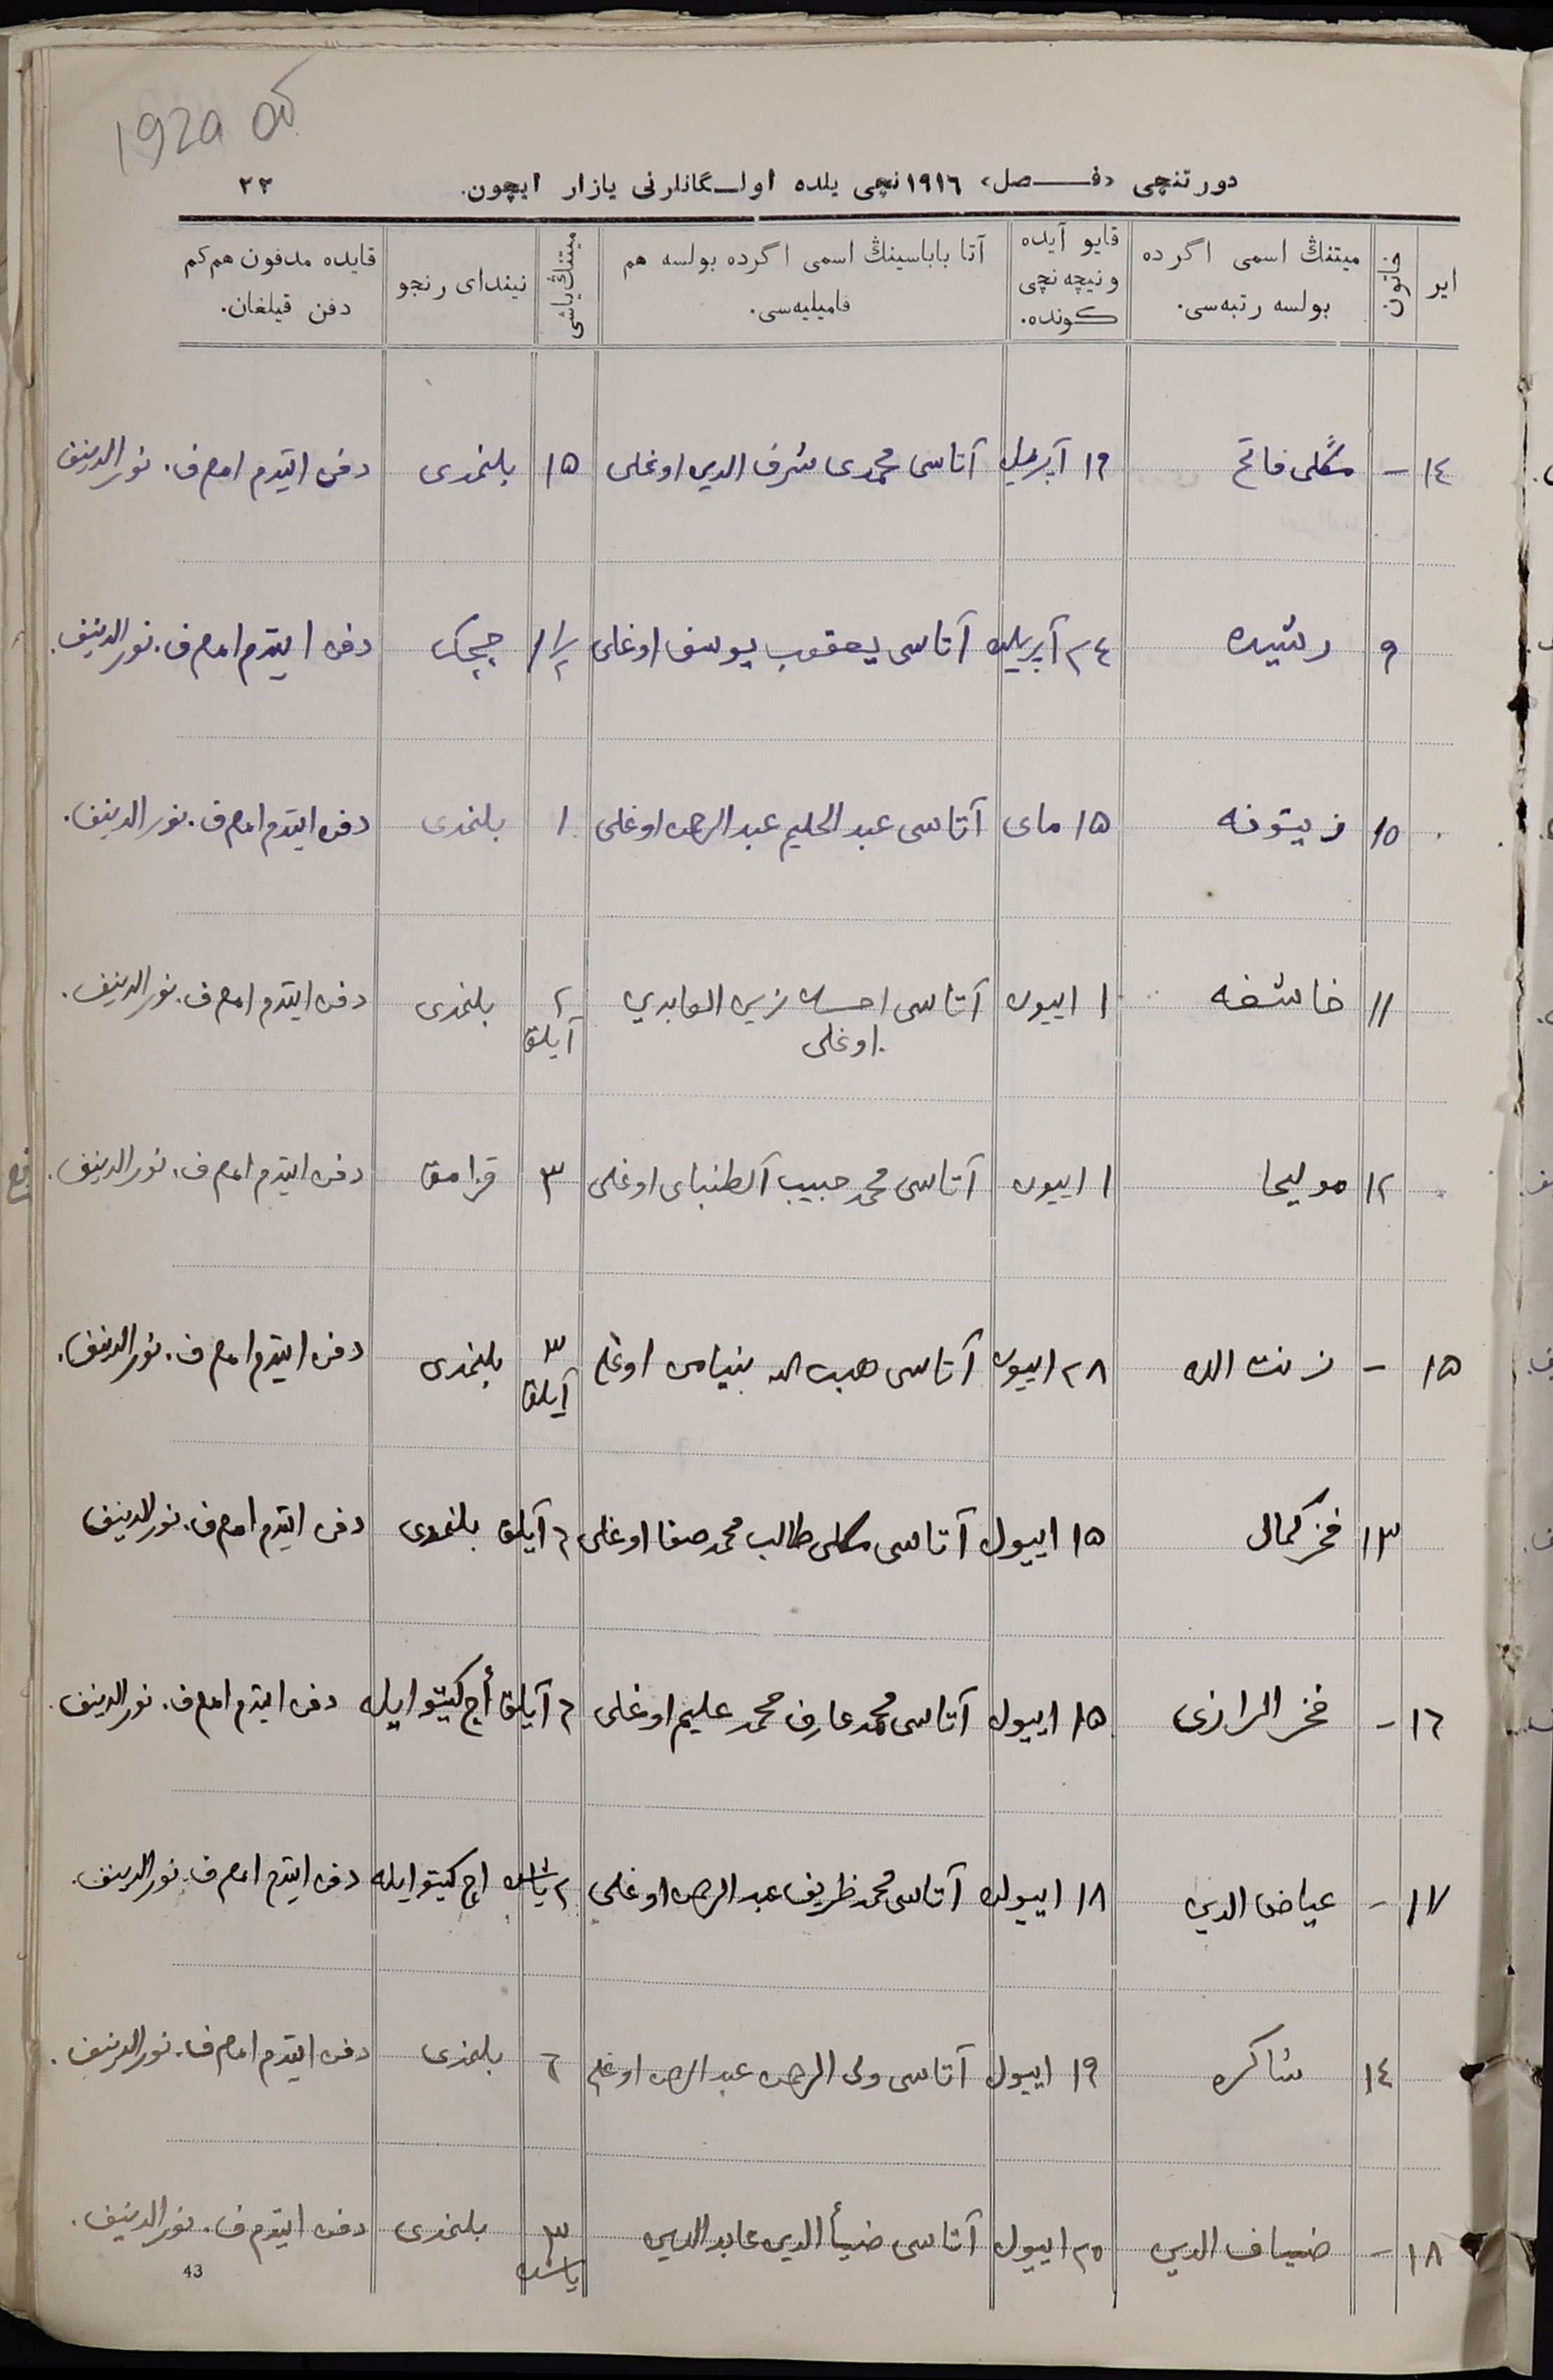 192а об
دورتنچی «فـــصل» ١٩١٦نچی یلده اولـــگانلرنی یازار ایچون. ٢٢
ایر
خاتون
میتنڭ اسمی اگرده بولسه رتبه‌سی.
قایو آیده ونیچه نچی کونده.
آتا باباسینڭ اسمی اگرده بولسه هم فامیلیه‌سی.
میتنڭ یاشی
نیندای رنجو
قایده مدفون هم‌کم دفن قیلغان.
١٤ – فاتح ١٩ آپریل آتاسی محمدی شرف الدین اوغلی ١٥ بلنمدی دفن ایتدم امام ف. نورالدینف
٩ رشیده ٢٤ آپریل آتاسی یعقوب یوسف اوغلی ١ ١/٢ چچک دفن ایتدم امام ف. نورالدینف.
١٠ زیتونه ١٥ مای آتاسی عبد الحلیم عبد الرحمن اوغلی ١ بلنمدی دفن ایتدم امام ف. نورالدینف.
١١ خاشفه ١ اییون آتاسی احسان زین العابدین اوغلی ٢ آیلق بلنمدی دفن ایتدم امام ف. نورالدینف.
١٢ مولیحا ١ اییون آتاسی محمد حبیب آلطنبای اوغلی ٣ قزامق دفن ایتدم امام ف. نورالدینف.
١٥ – زینت الله ٢٨ اییون آتاسی هبت الله بنیامن اوغلی ٣ آیلق بلنمدی دفن ایتدم امام ف. نورالدینف.
١٣ فخر کمال ١٥ اییول آتاسی طالب محمد صفا اوغلی ٦ آیلق بلنمدی دفن ایتدم امام ف. نورالدینف
١٦ – فخر الرازی ١٥ اییول آتاسی محمد عارف محمد علیم اوغلی ٦ آیلق اچ کیتو ایله دفن ایتدم امام ف. نورالدینف.
١٧ – عیاض الدین ١٨ اییول آتاسی محمد ظریف عبد الرحمن اوغلی ٢ یاشده اچ کیتو ایله دفن ایتدم امام ف. نورالدینف.
١٤ شاکره ١٩ اییول آتاسی ولی الرحمن عبد الرحمن اوغلی ٦ بلنمدی دفن ایتدم امام ف. نورالدینف.
١٨ – ضیاف الدین ٢٥ اییول آتاسی ضیأ الدین عابد الدین ٣ یاشده بلنمدی دفن ایتدم ف. نورالدینف.
43